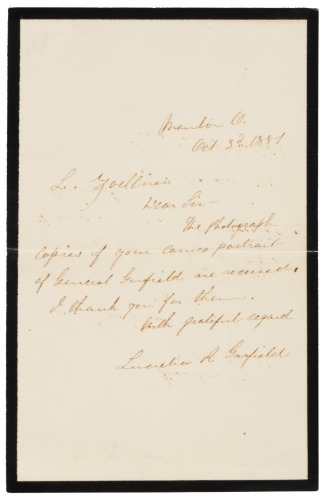 Mentor O.
Oct 3d. 1881
L. Zoellner
Dear Sir—
The photograph
copies of your cameo portrait
of General Garfield are received.
I thank you for them.
With grateful regard
Lucretia R. Garfield